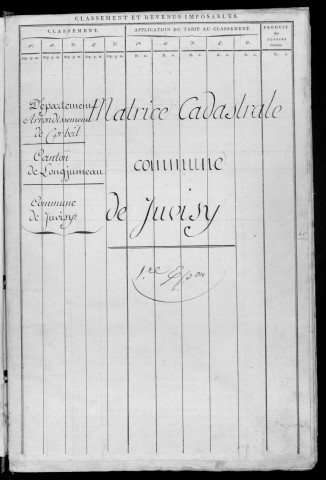 CLASSEMENT ET REVENUS IMPOSABLES.
CLASSEMENT.
APPLICATION DU TARIF AU CLASSEMENT.
PRODUIT
des
CLASSES
Département
Arrondissement
de Corbeil
Canton
de Longjumeau
Commune
de Juvisy
Matrice Cadastrale
commune
de Juvisy
1.re